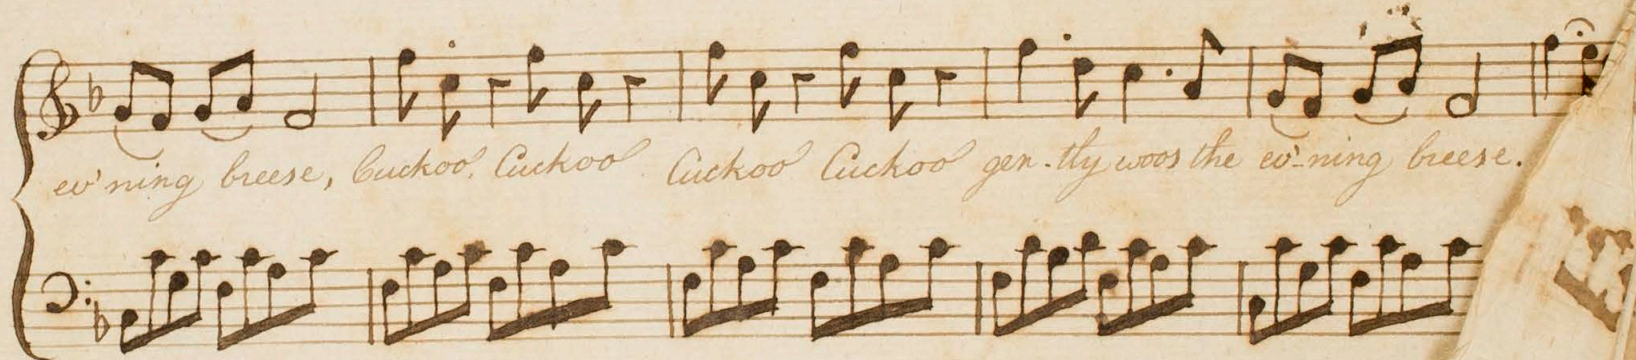 ev'ning breese, Cuckoo, Cuckoo Cuckoo Cuckoo gen-tly woos the ev'-ning breese.